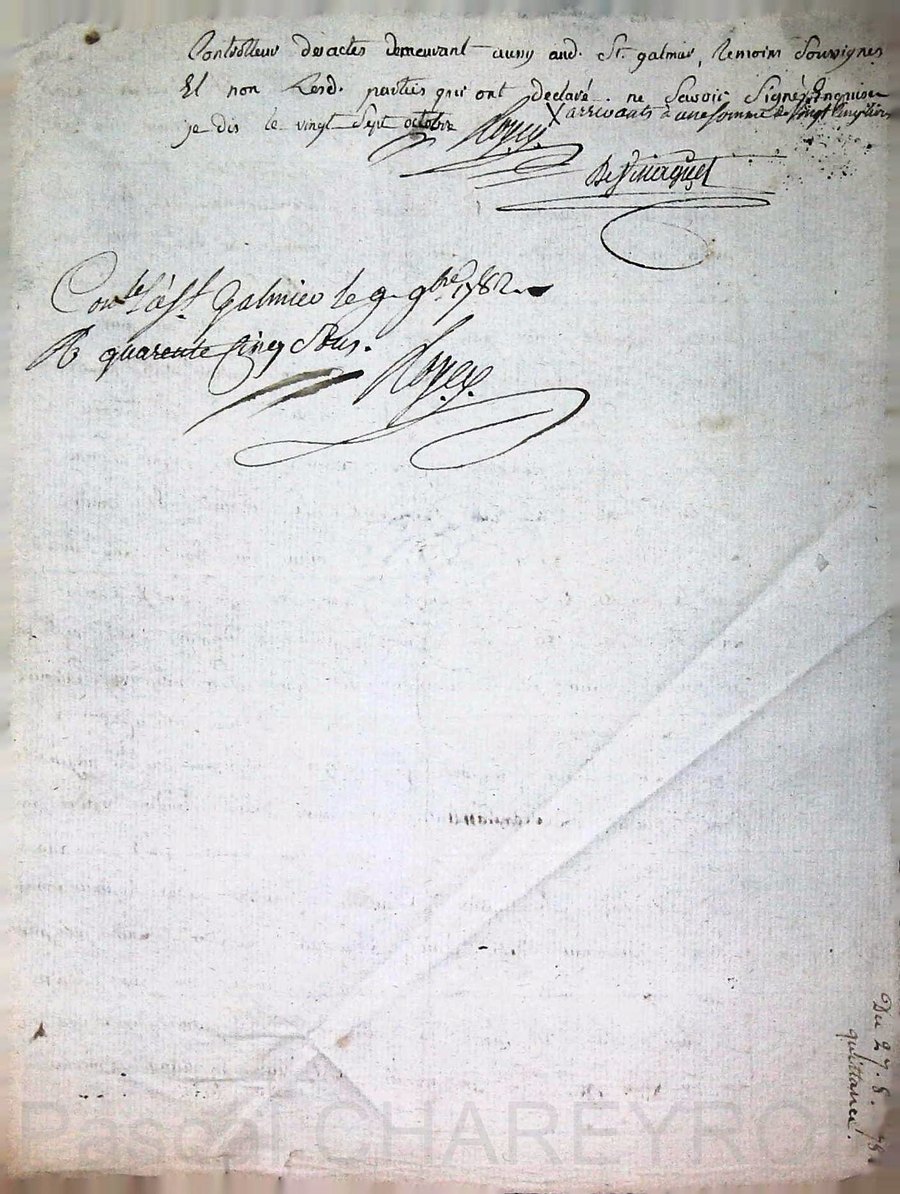 Controlleur des actes demeurant aussy aud. St. galmier, temoins Souvignes
Et non Lesd. parties qui ont declaré ne Scavoir Signé, Enquis
je dis le vingt Sept octobre
X arrivants a une Somme de vingt Cinq livres
Royer
Conlé à St Galmier le 9. 9bre 1782.
R quarente Cinq Sous.
Royer
Du 27. 8.
quittance.
Pascal CHAREYRO